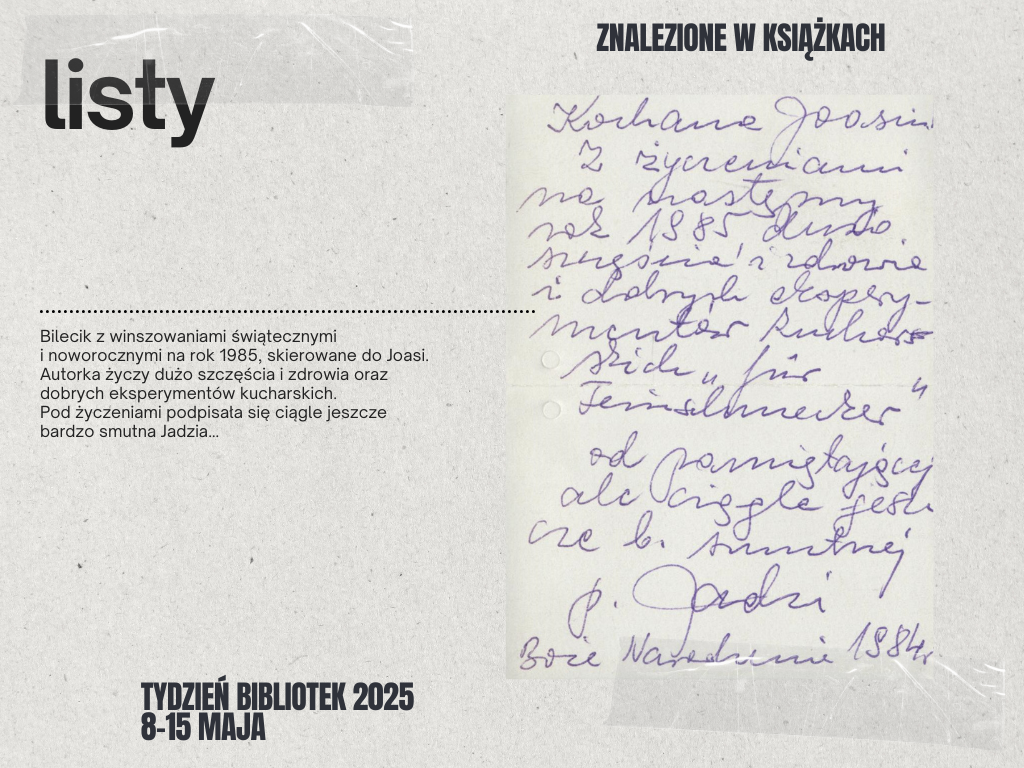 ZNALEZIONE W KSIĄŻKACH
listy
Bilecik z winszowaniami świątecznymi
i noworocznymi na rok 1985, skierowane do Joasi.
Autorka życzy dużo szczęścia i zdrowia oraz
dobrych eksperymentów kucharskich.
Pod życzeniami podpisała się ciągle jeszcze
bardzo smutna Jadzia...
Kochana Joasiu
Z życzeniami
na następny
rok 1985 dużo
szczęścia i zdrowia
i dobrych ekspery-
mentów kuchar
skich „für
Feinschmecker"
od pamiętającej
ale ciągle jesz
cze b. smutnej
p. Jadzi
Boże Narodzenie 1984r.
TYDZIEŃ BIBLIOTEK 2025
8-15 MAJA